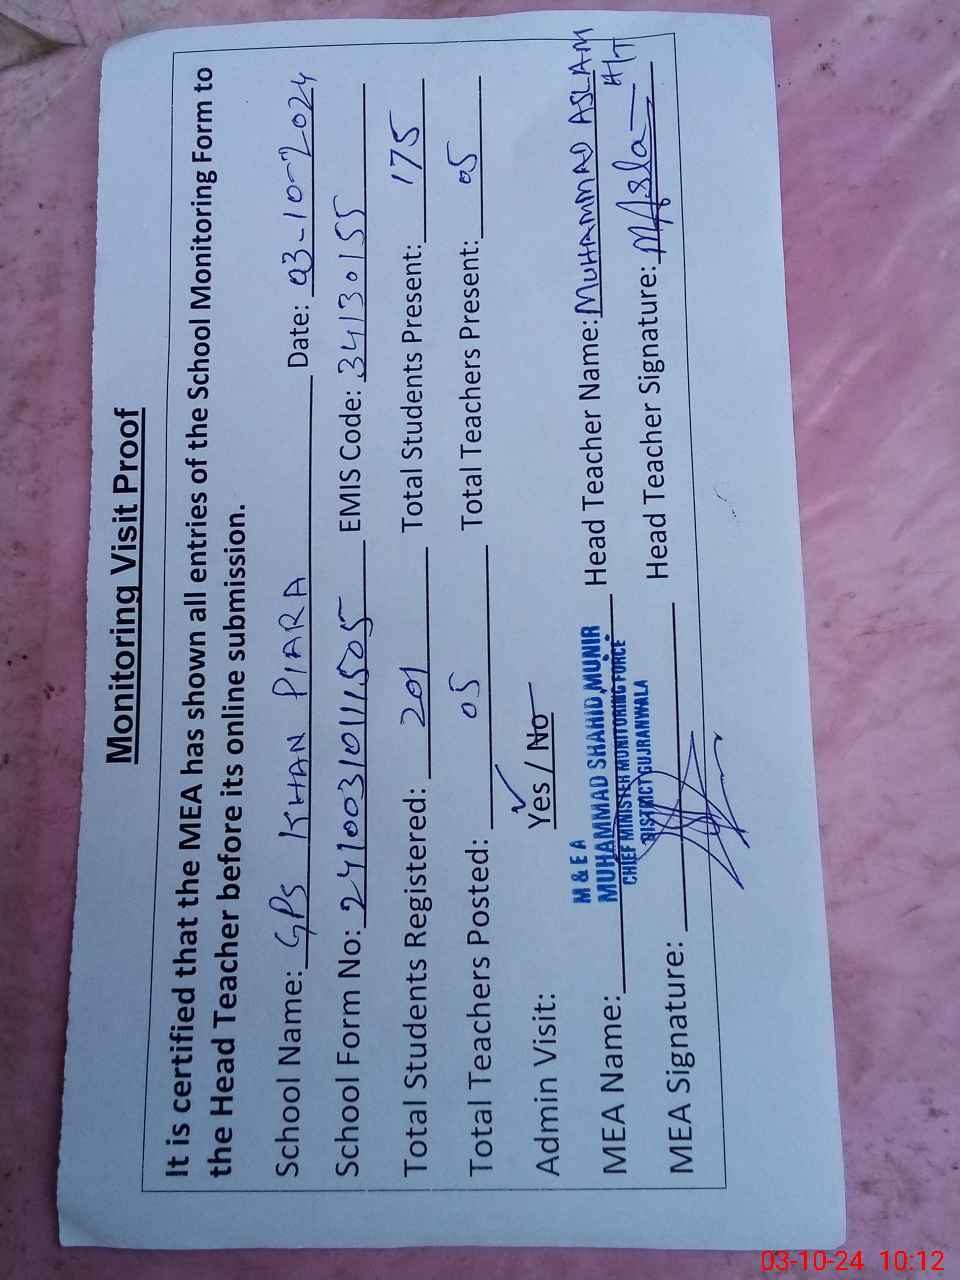 Monitoring Visit Proof
It is certified that the MEA has shown all entries of the School Monitoring Form to
the Head Teacher before its online submission.
School Name: GPS KHAN PIARA Date: 03-10-2024
School Form No: 24100310111505 EMIS Code: 34130155
Total Students Registered: 201 Total Students Present: 175
Total Teachers Posted: 05 Total Teachers Present: 05
Admin Visit: Yes / No
M & E A
MUHAMMAD SHAHID MUNIR
CHIEF MINISTER MONITORING FORCE
DISTRICT GUJRANWALA
MEA Name: Head Teacher Name: MUHAMMAD ASLAM
H/T
MEA Signature: Head Teacher Signature: MAslam
03-10-24 10:12